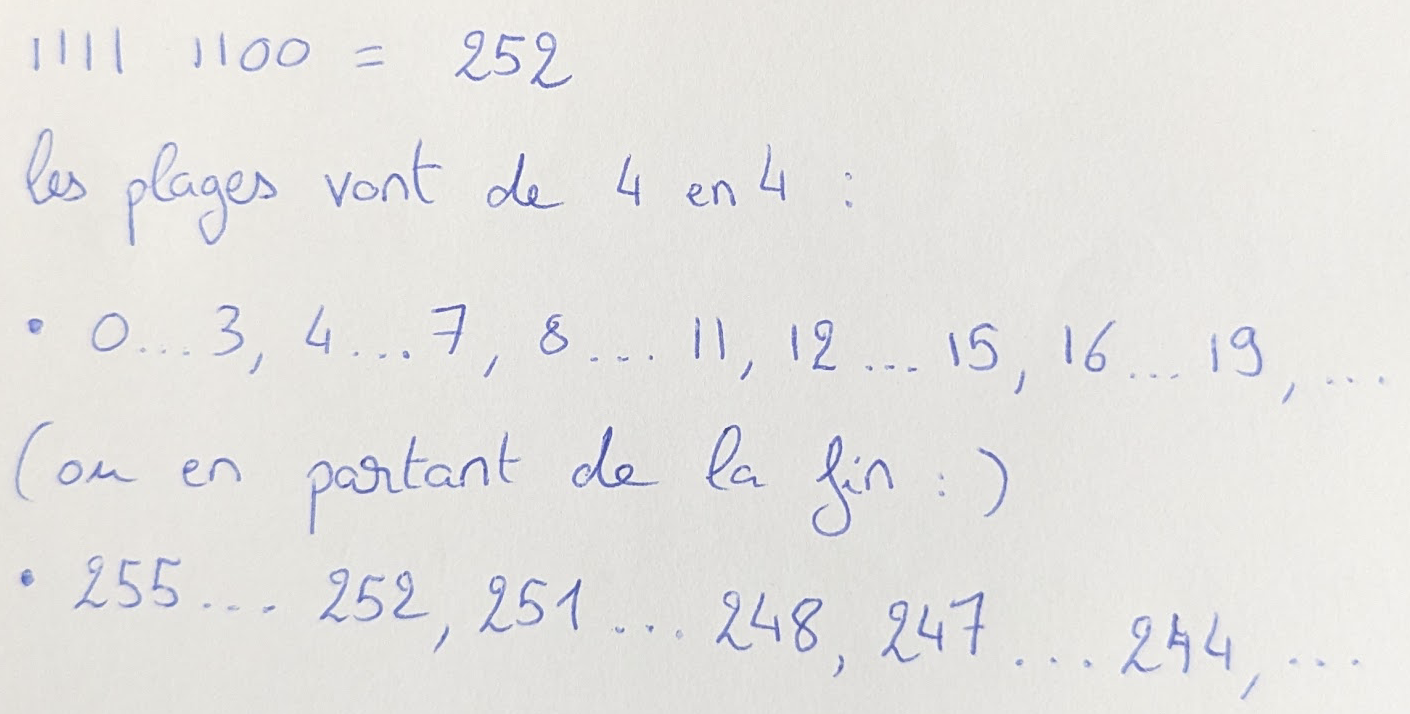 1111 1100 = 252
les plages vont de 4 en 4 :
• 0...3, 4...7, 8....11, 12...15, 16...19, ...
(ou en partant de la fin : )
• 255... 252, 251 ... 248, 247 ... 244, ...